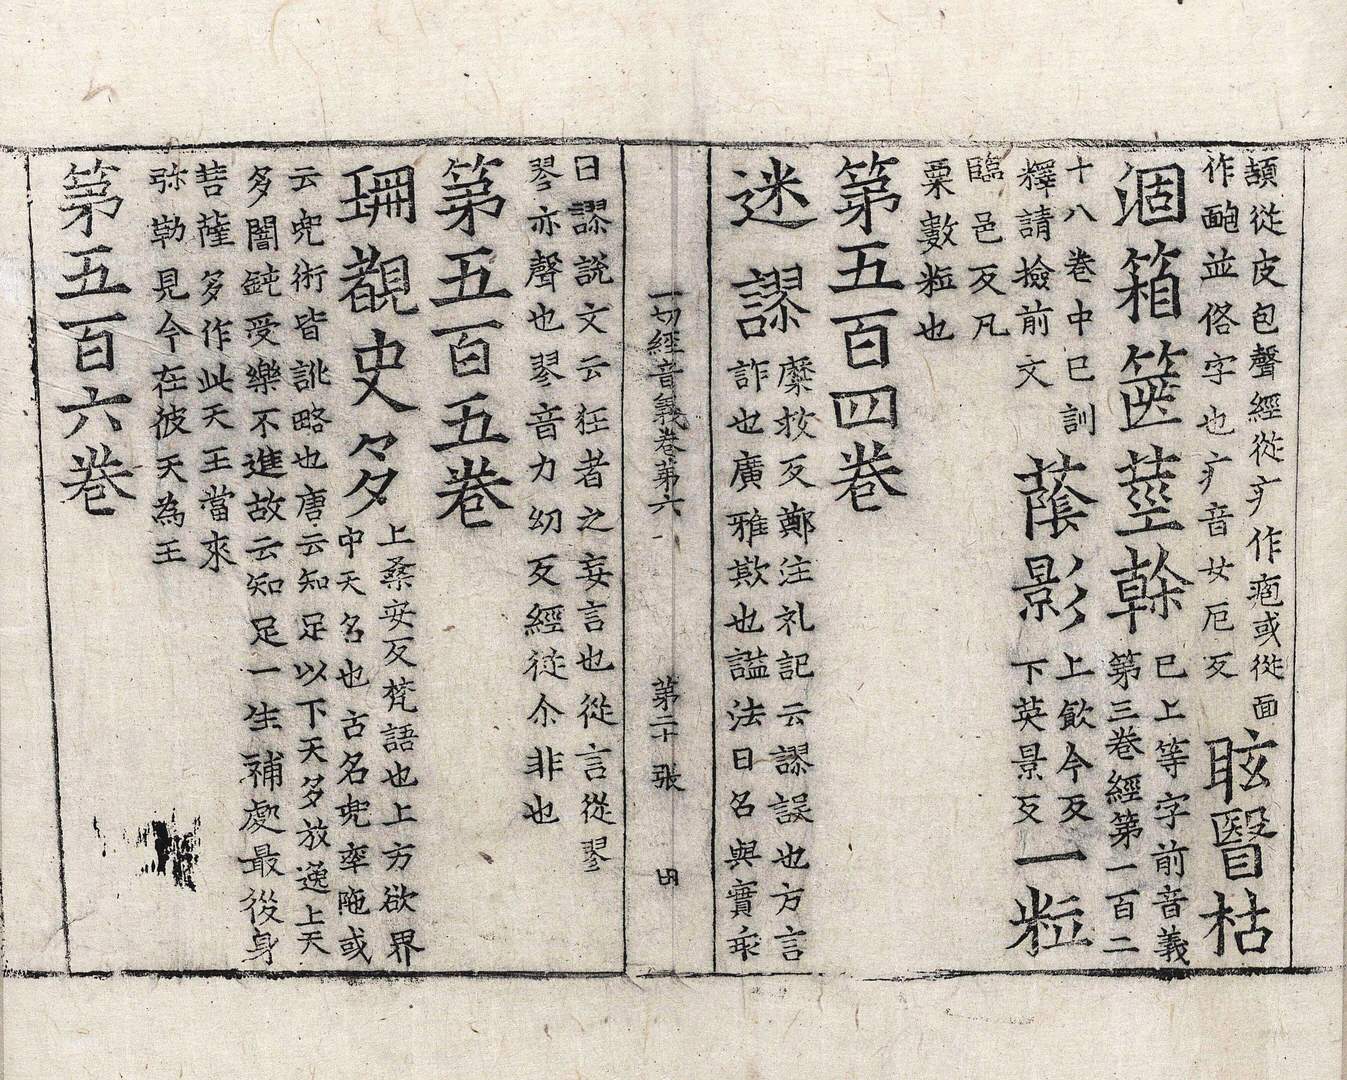 從皮包聲經從疒作疱或從面
作靤並俗字也疒音女厄反
眩瞖枯
涸箱篋莖幹
已上等字前音義
第三巻經第一百二
十八巻中已訓
釋請撿前文
蔭影
上飲今反
下英景反
一粒
臨邑反凡
粟數粒也
第五百四巻
迷謬
縻救反鄭注礼記云謬誤也方言
詐也廣雅欺也謚法曰名與實乖
曰謬說文云狂者之妄言也從言從翏
翏亦聲也翏音力幼反經從尒非也
一切經音義巻第六
第二十張
第五百五巻
珊覩史多
上桑安反梵語也上方欲界
中天名也古名兜率陁或
云兜術皆訛略也唐云知足以下天多放逸上天
多闇鈍受樂不進故云知足一生補處最後身
菩薩多作此天王當來
弥勒見今在彼天為王
第五百六巻